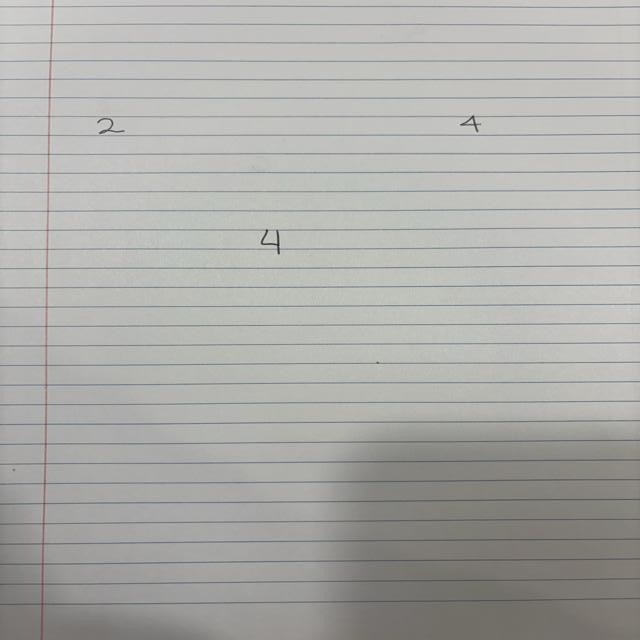 2 4
4